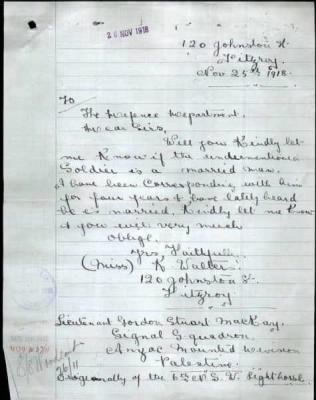 26 NOV 1918
120 Johnston St
Fitzroy.
Nov 25th 1918.
To
The Defence Department.
Dear Sirs,
Will you Kindly let
me Know if the undermentioned
Soldier is a married man.
I have been Corresponding with him
for four years & have lately heard
he is married. Kindly let me Know
& you will very much
oblige.
Yrs Faithfully
(Miss) K. Walters.
120 Johnston St
Fitzroy
Lieutenant Gordon Stuart MacKay.
Signal Squadron.
Anzac Mounted Division
Palestine.
Originally of the
Lighthorse.
26/11